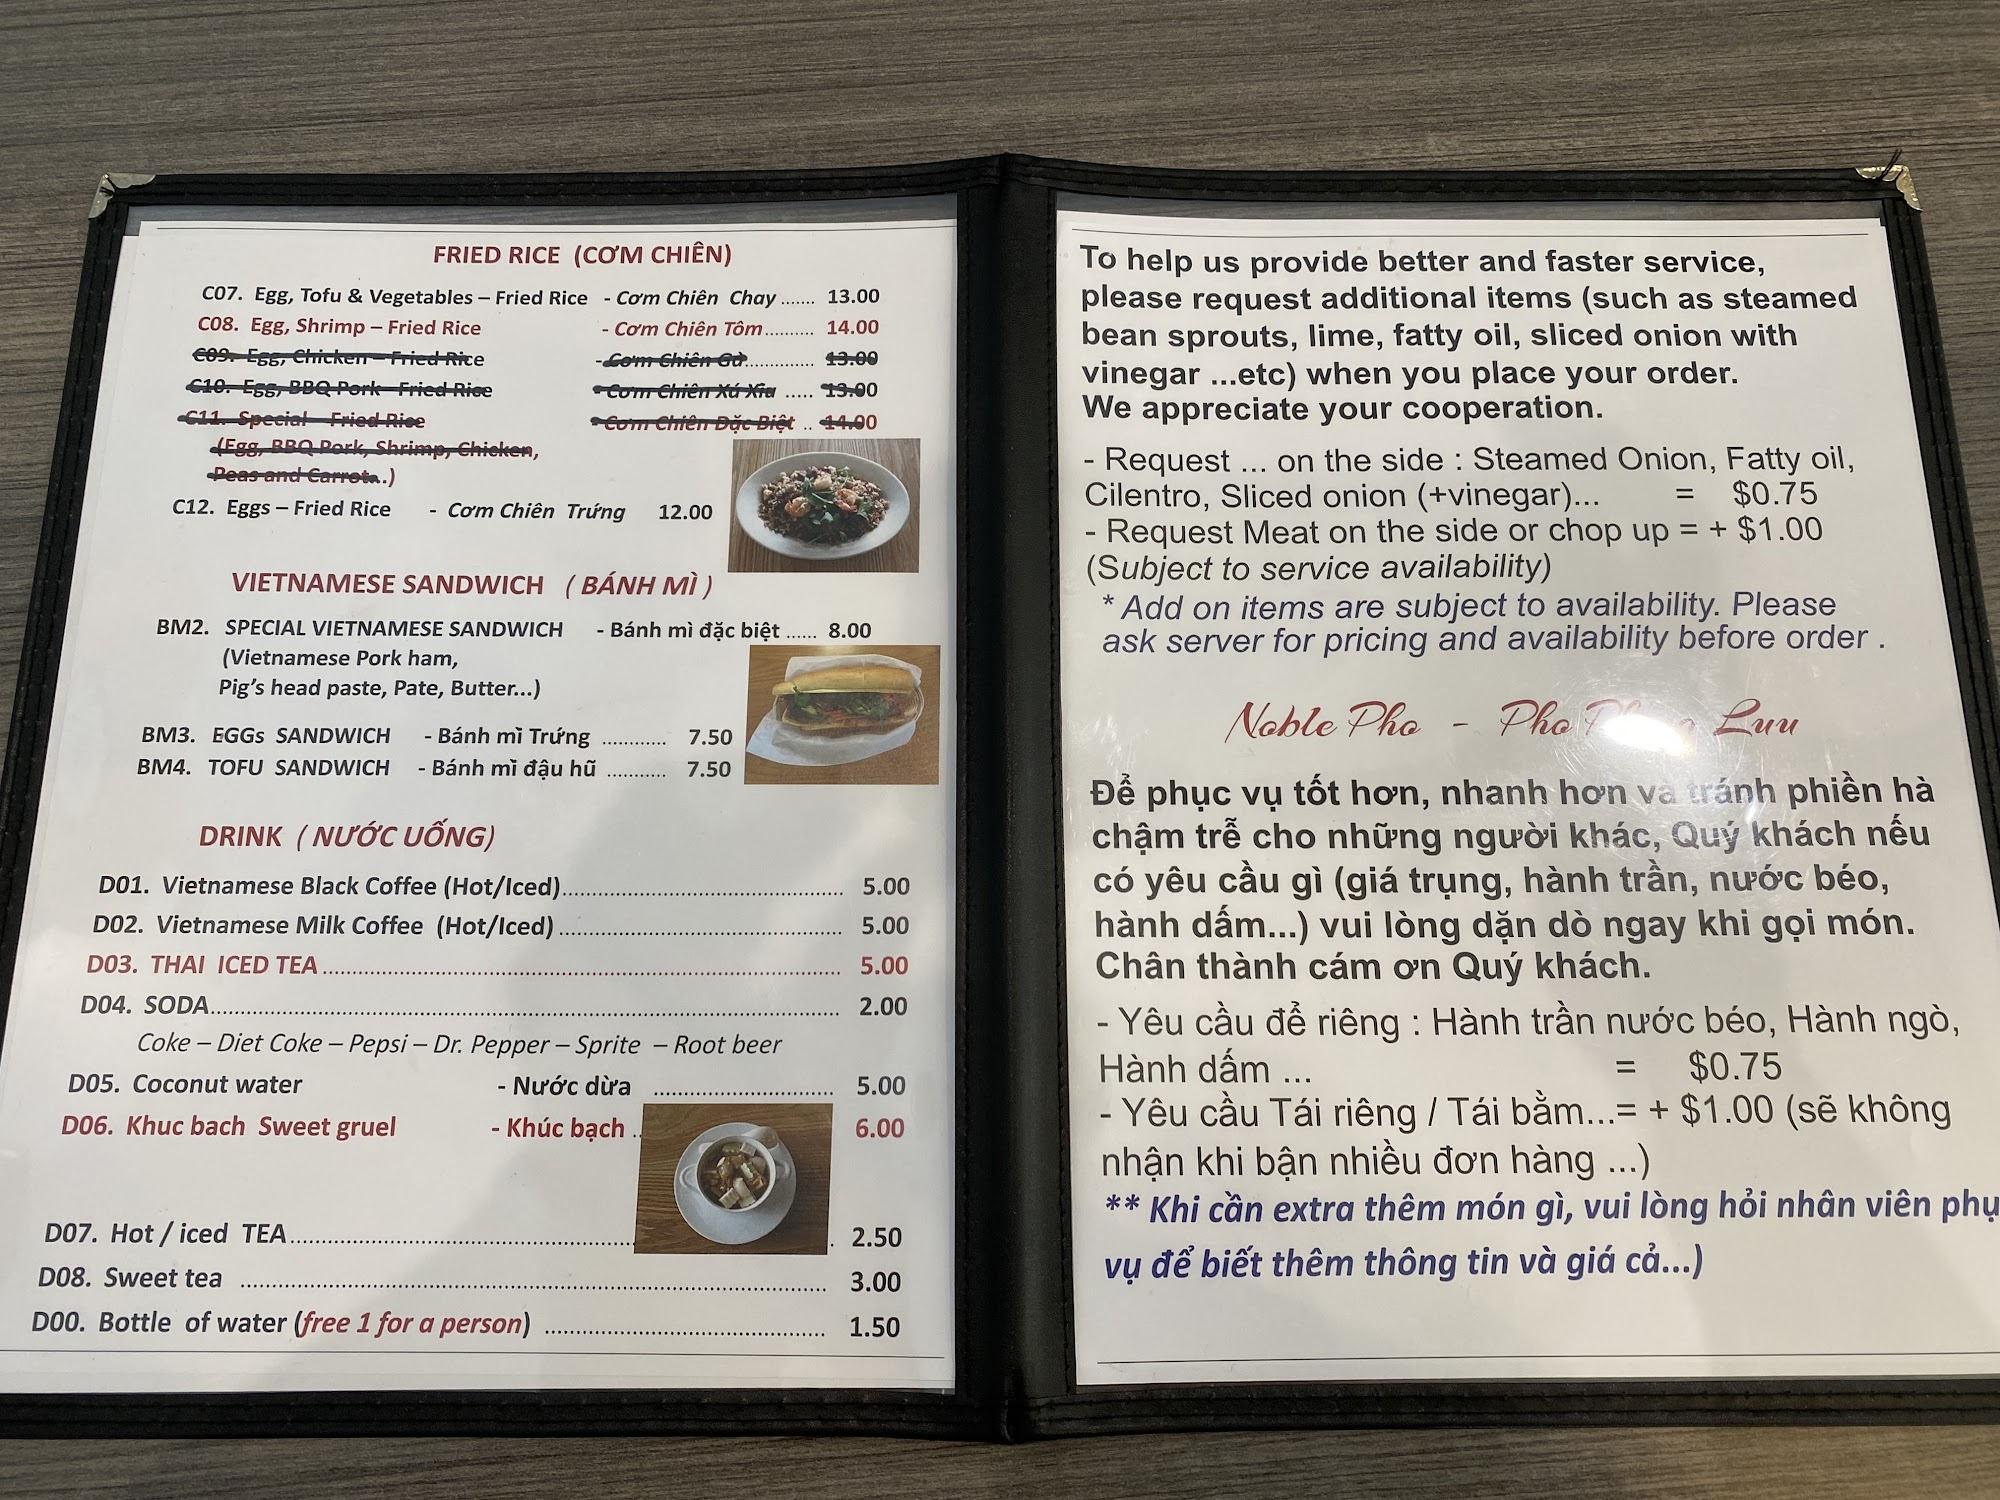 FRIED RICE (CƠM CHIÊN)
C07. Egg, Tofu & Vegetables – Fried Rice - Cơm Chiên Chay ....... 13.00
C08. Egg, Shrimp – Fried Rice - Cơm Chiên Tôm .......... 14.00
C09. Egg, Chicken – Fried Rice - Cơm Chiên Gà .............. 13.00
C10. Egg, BBQ Pork – Fried Rice - Cơm Chiên Xá Xíu ..... 13.00
C11. Special – Fried Rice - Cơm Chiên Đặc Biệt .. 14.00
(Egg, BBQ Pork, Shrimp, Chicken,
Peas and Carrot...)
C12. Eggs – Fried Rice - Cơm Chiên Trứng 12.00
VIETNAMESE SANDWICH ( BÁNH MÌ )
BM2. SPECIAL VIETNAMESE SANDWICH - Bánh mì đặc biệt ...... 8.00
(Vietnamese Pork ham,
Pig’s head paste, Pate, Butter...)
BM3. EGGs SANDWICH - Bánh mì Trứng ............ 7.50
BM4. TOFU SANDWICH - Bánh mì đậu hũ ........... 7.50
DRINK ( NƯỚC UỐNG)
D01. Vietnamese Black Coffee (Hot/Iced)........................................ 5.00
D02. Vietnamese Milk Coffee (Hot/Iced)........................................ 5.00
D03. THAI ICED TEA........................................................................ 5.00
D04. SODA........................................................................................ 2.00
Coke – Diet Coke – Pepsi – Dr. Pepper – Sprite – Root beer
D05. Coconut water - Nước dừa ......................... 5.00
D06. Khuc bach Sweet gruel - Khúc bạch .. 6.00
D07. Hot / iced TEA.................................................. 2.50
D08. Sweet tea .................................................................................. 3.00
D00. Bottle of water (free 1 for a person) ........................................ 1.50
To help us provide better and faster service,
please request additional items (such as steamed
bean sprouts, lime, fatty oil, sliced onion with
vinegar ...etc) when you place your order.
We appreciate your cooperation.
- Request ... on the side : Steamed Onion, Fatty oil,
Cilentro, Sliced onion (+vinegar)... = $0.75
- Request Meat on the side or chop up = + $1.00
(Subject to service availability)
* Add on items are subject to availability. Please
ask server for pricing and availability before order .
Noble Pho - Pho Luu
Để phục vụ tốt hơn, nhanh hơn và tránh phiền hà
chậm trễ cho những người khác, Quý khách nếu
có yêu cầu gì (giá trụng, hành trần, nước béo,
hành dấm...) vui lòng dặn dò ngay khi gọi món.
Chân thành cám ơn Quý khách.
- Yêu cầu để riêng : Hành trần nước béo, Hành ngò,
Hành dấm ... = $0.75
- Yêu cầu Tái riêng / Tái bằm...= + $1.00 (sẽ không
nhận khi bận nhiều đơn hàng ...)
** Khi cần extra thêm món gì, vui lòng hỏi nhân viên phụ
vụ để biết thêm thông tin và giá cả...)